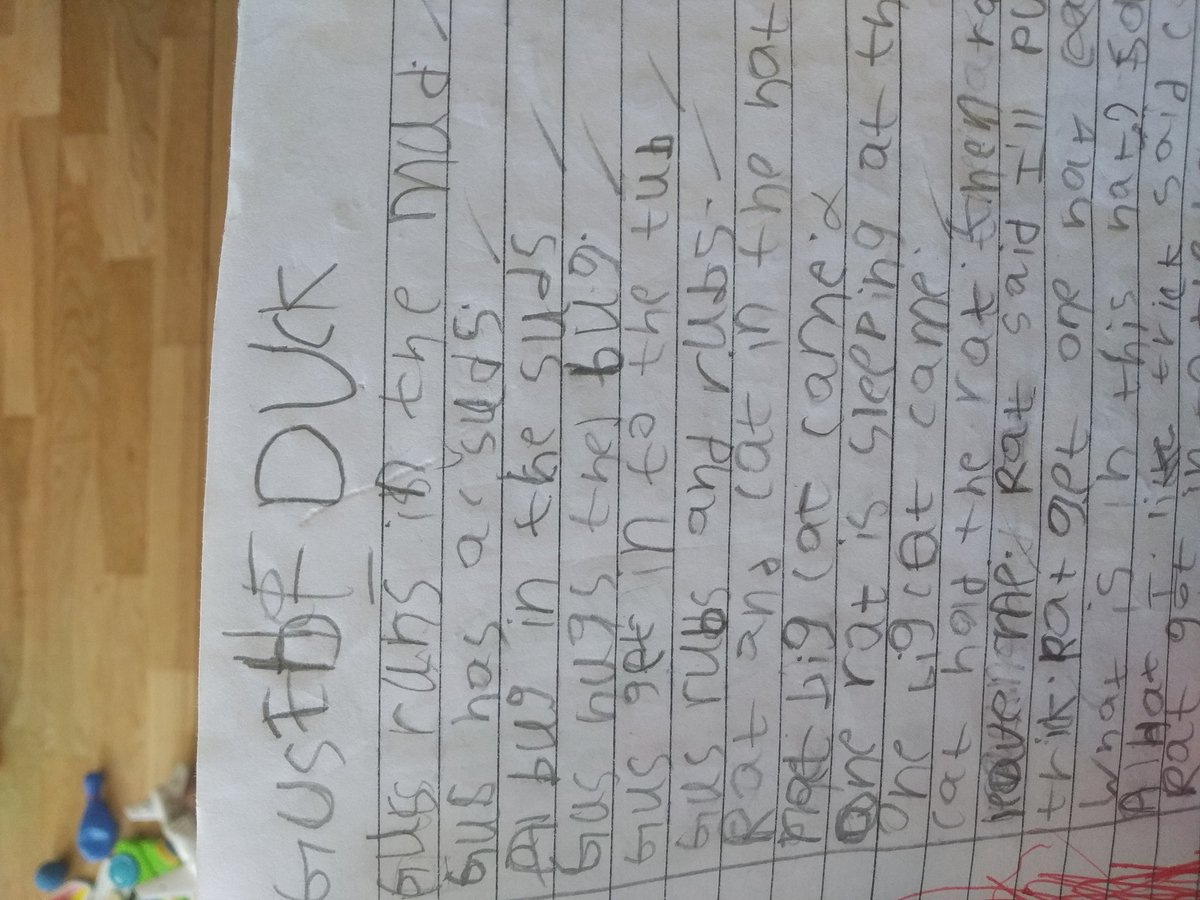 Gus the DUck
Gus runs in the mud.
Gus has a suds.
A bug in the suds
Gus hugs the bug.
Gus get in to the tub
Gus rubs and rubs.
Rat and cat in the hat
Not big cat came.
One rat is sleeping at th
One big cat came.
cat had the rat. then
me. Rat said I'll pu
trik. Rat get one hat
What is in this hat?
A Hat I trick said
Rat got in